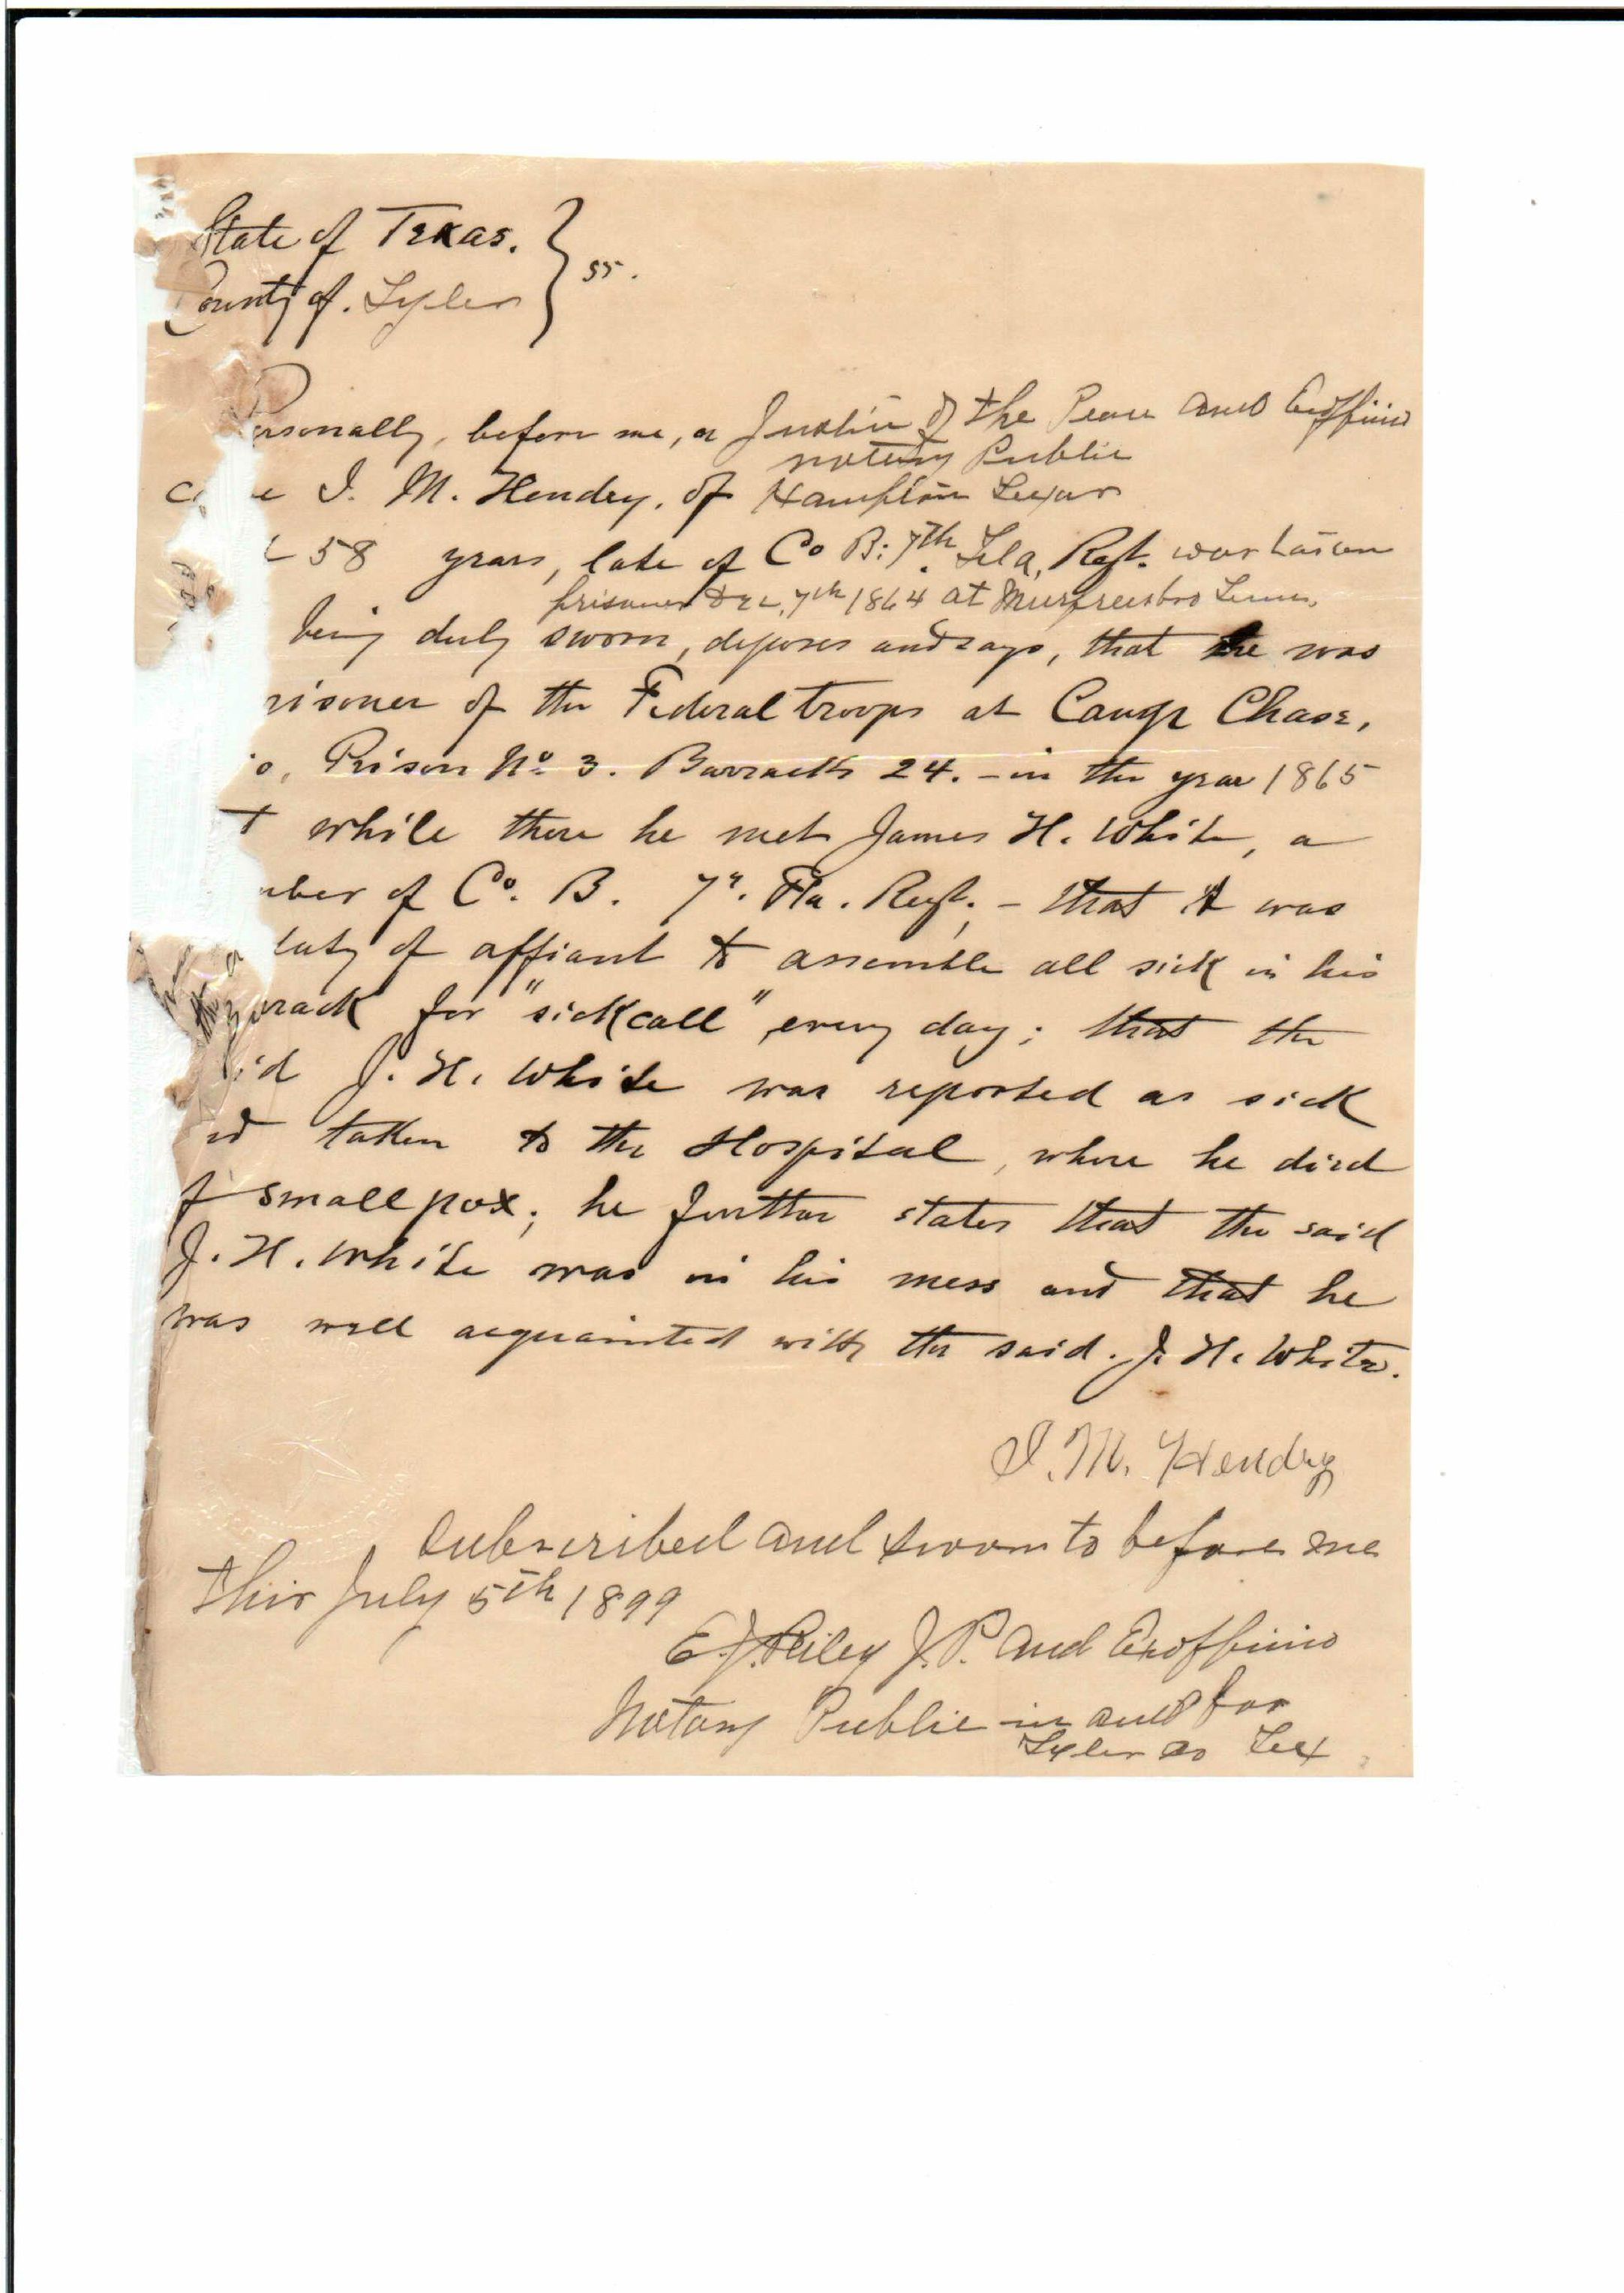 State of Texas. } ss.
County of. Tyler
Personally, before me, a Justice of the Peace and Exofficio
notary Public
I. M. Hendry, of Hampton Texas
58 years, late of Co B: 7th. Fla, Regt. was taken
prisoner Dec, 7th 1864 at Murfreesboro Tenn,
being duly sworn, deposes and says, that he was
risoner of the Federal troops at Camp Chase,
o, Prison No 3. Barracks 24. - in the year 1865
t while there he met James H. White, a
mber of Co. B. 7". Fla. Regt. - that it was
duty of affiant to assemble all sick in his
rrack for "sickcall" every day; that the
id J. H. White was reported as sick
nd taken to the Hospital, where he died
f smallpox; he further states that the said
J. H. White was in his mess and that he
was well acquainted with the said. J. H. White.
I. M. Hendry
Subscribed and sworn to before me
this July 5th 1899
E. J. Riley J. P. and Exofficio
Notary Public in and for
Tyler Co Tex